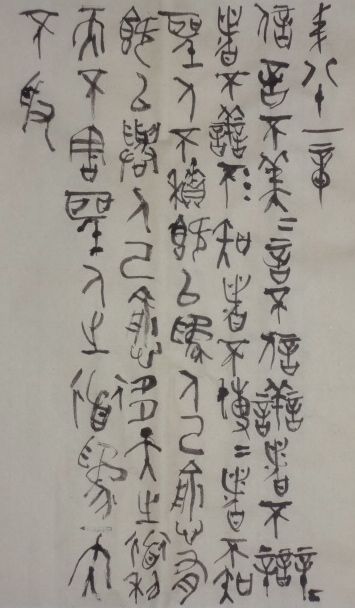 八十一章
信言不美〻言不信善者不辯〻
者不善不〻知者不博〻者不知
聖人不積既以為人己愈有
既以與人己愈多天之道利
而不害聖人之道為而
不爭